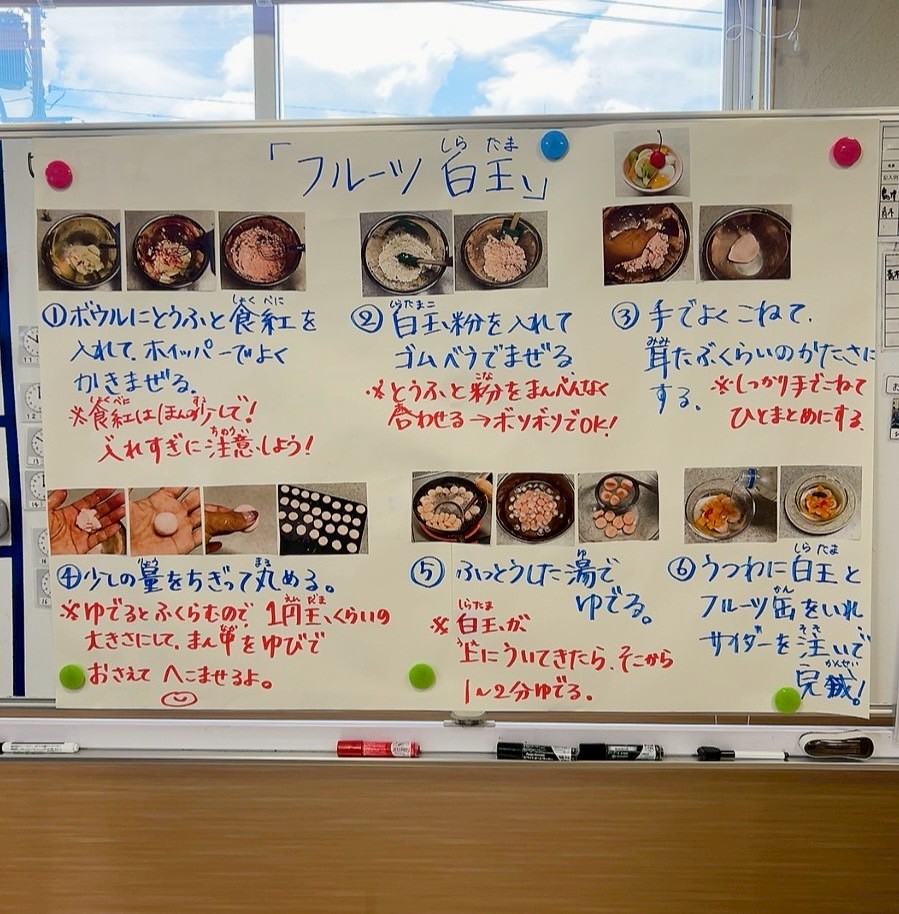 「フルーツ白玉」
しらたま
①ボウルにとうふと食紅を
しょくべに
入れて、ホイッパーでよく
かきまぜる。
※食紅はほんの少しで!
しょくべに
すこ
入れすぎに注意しよう!
ちゅうい
②白玉粉を入れて
しらたまこ
ゴムベラでまぜる
※とうふと粉をまんべんなく
こな
合わせる→ボソボソでOK!
③手でよくこねて、
耳たぶくらいのかたさに
みみ
する。
※しっかり手でこねて
ひとまとめにする。
④少しの量をちぎって丸める。
りょう
まる
※ゆでるとふくらむので、1円玉くらいの
えんだま
大きさにして、まん中をゆびで
おさえてへこませるよ。
⑤ふっとうした湯で
ゆ
ゆでる。
※白玉が
しらたま
上にういてきたら、そこから
うえ
1~2分ゆでる。
⑥うつわに白玉と
しらたま
フルーツ缶をいれ
かん
サイダーを注いで
そそ
完成!
かんせい